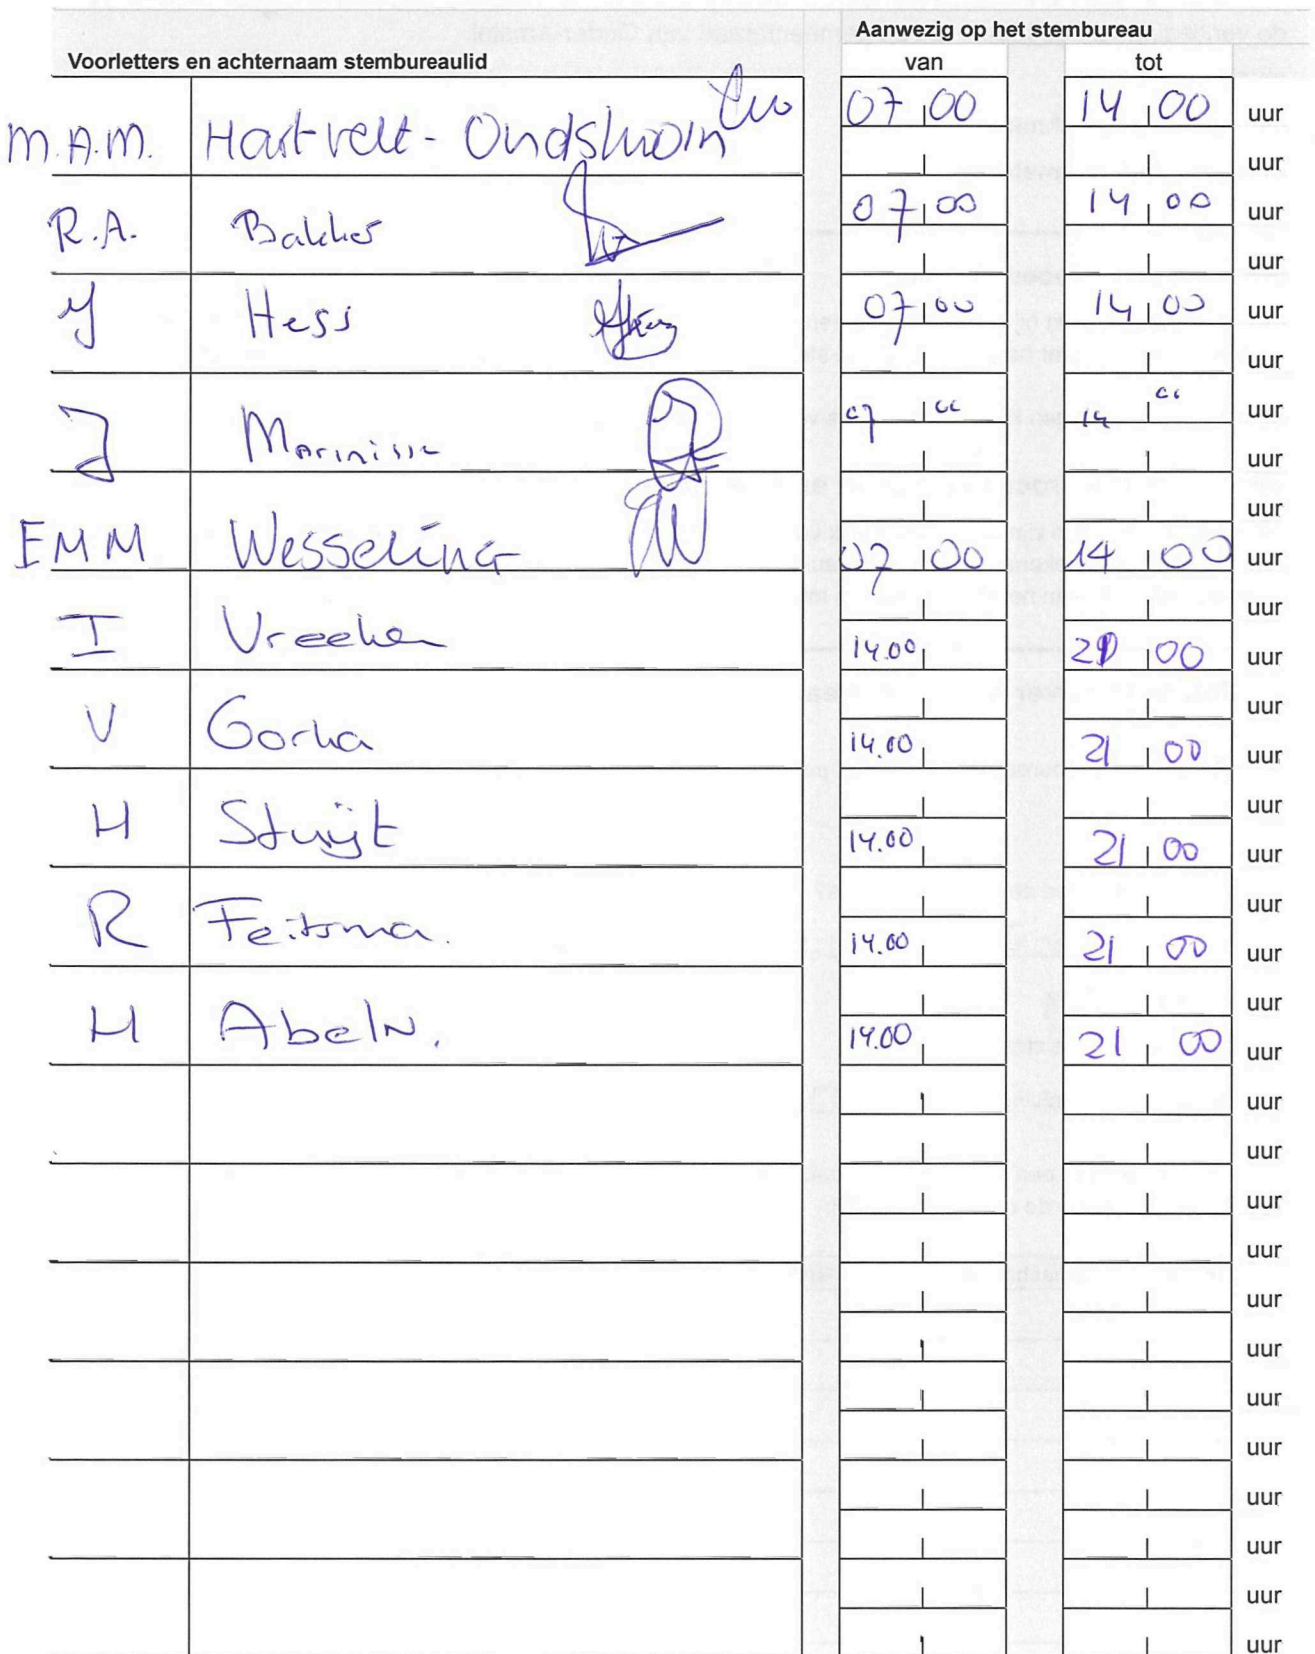 Aanwezig op het stembureau
Voorletters en achternaam stembureaulid van tot
M.A.M. Hartvelt - Oudshoorn 07 00 14 00 uur
uur
R.A. Bakker 07 00 14 00 uur
uur
Y Hess 07 00 14 00 uur
uur
J Marinisse 07 00 14 00 uur
uur
uur
EMM Wesseling 07 00 14 00 uur
uur
I Vreeken 14.00 21 00 uur
uur
V Gorka 14.00 21 00 uur
uur
H Stuijt 14.00 21 00 uur
uur
R Feitsma. 14.00 21 00 uur
uur
H Abeln. 14.00 21 00 uur
uur
uur
uur
uur
uur
uur
uur
uur
uur
uur
uur
uur